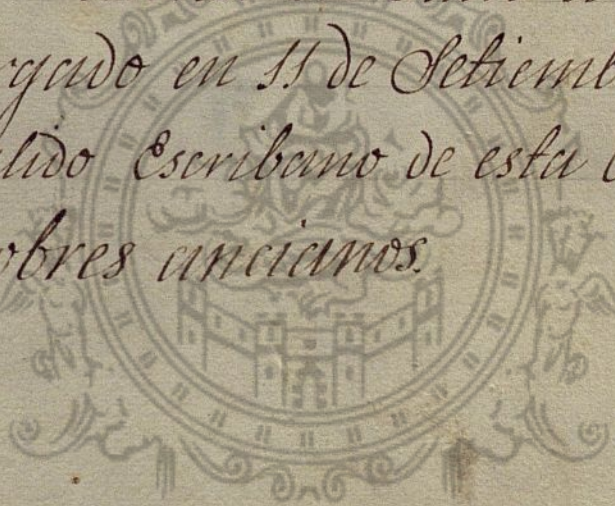 rgado en 11 de Setiemb
lido Escribano de esta C
obres ancianos.